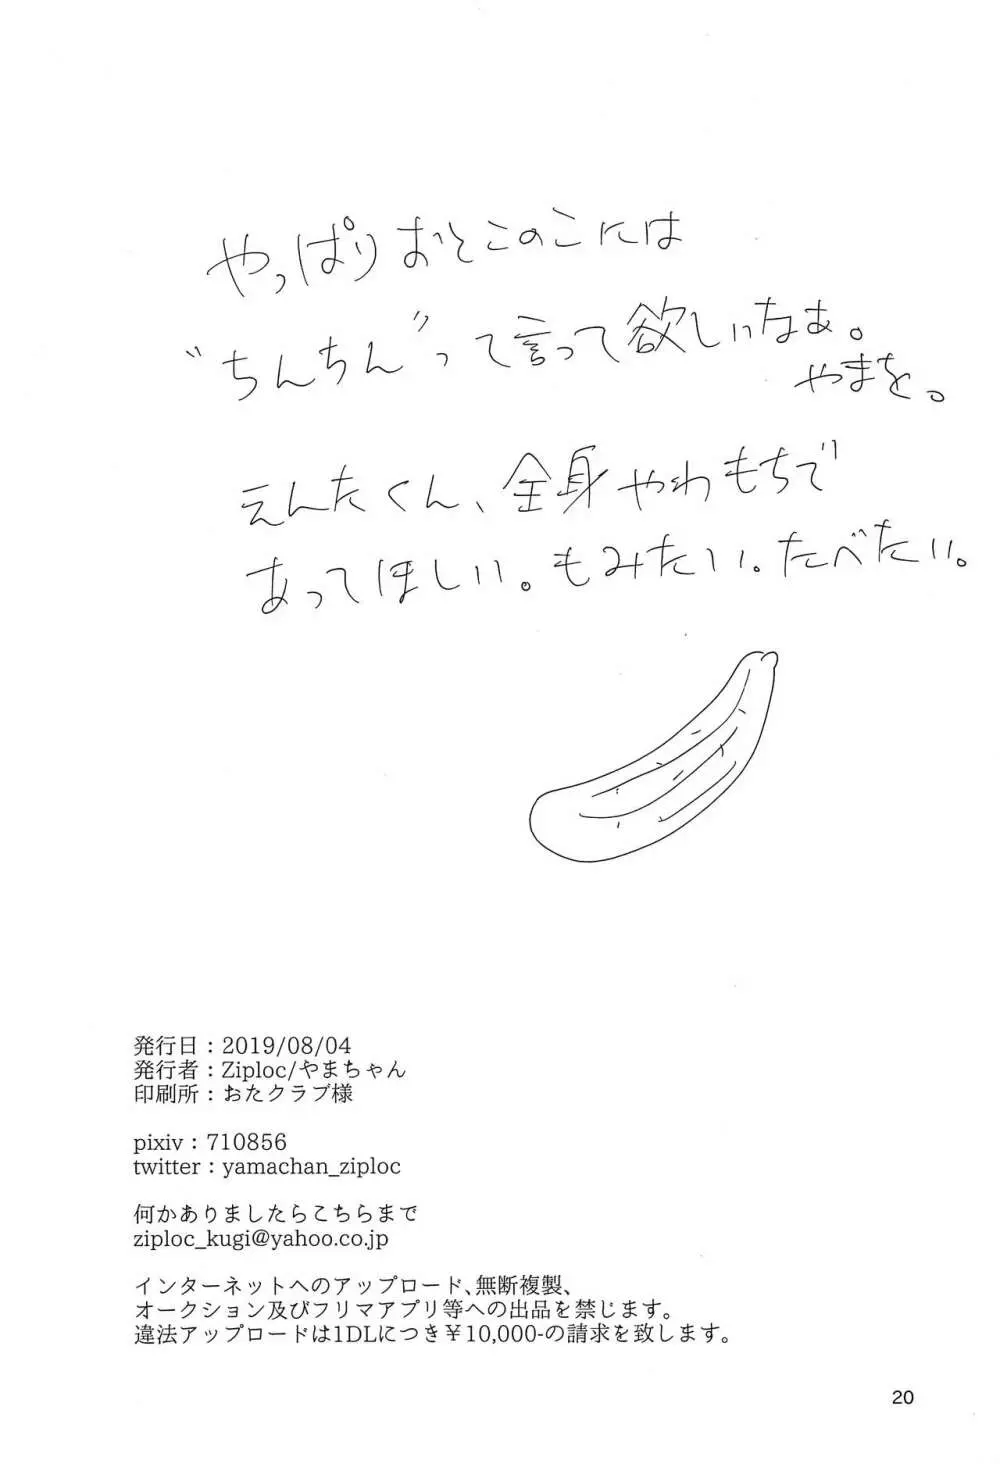 やっぱりおとこのこには
"ちんちん"って言って欲しいなぁ。
やまを。
えんたくん、全身やわもちで
あってほしい。もみたい。たべたい。
発行日：2019/08/04
発行者：Ziploc/やまちゃん
印刷所：おたクラブ様
pixiv：710856
twitter：yamachan_ziploc
何かありましたらこちらまで
ziploc_kugi@yahoo.co.jp
インターネットへのアップロード、無断複製、
オークション及びフリマアプリ等への出品を禁じます。
違法アップロードは1DLにつき¥10,000-の請求を致します。
20